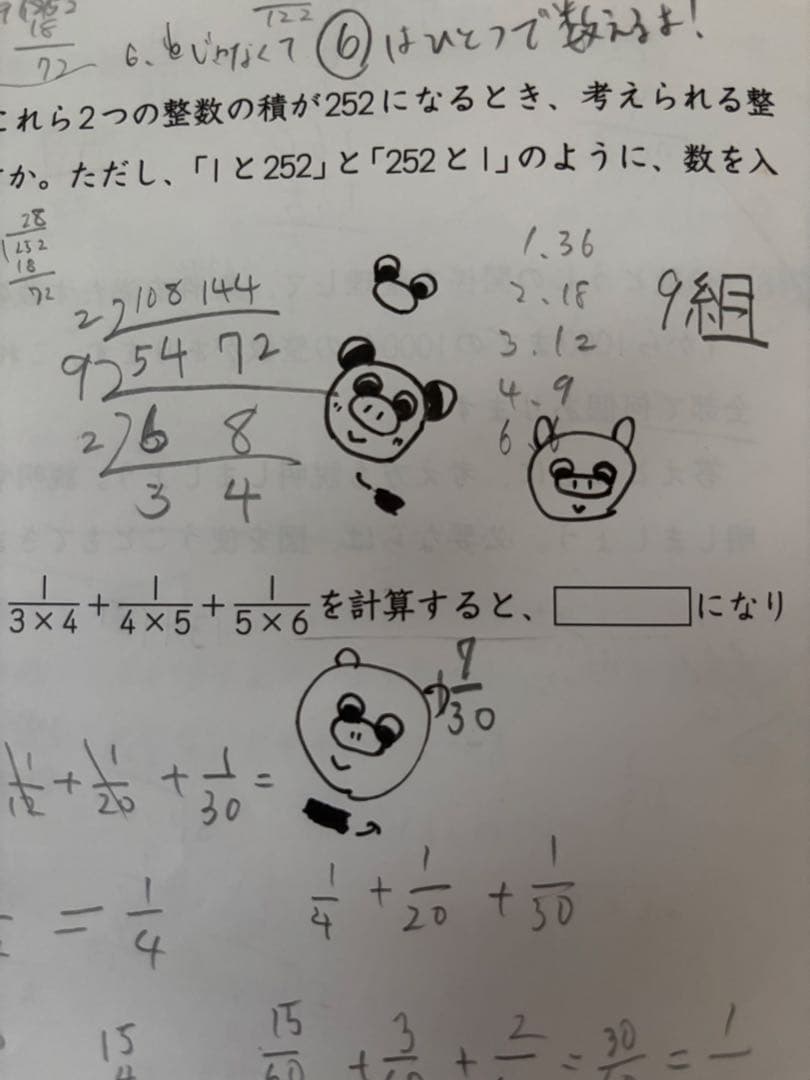 18
72
122
6、もじゃなくて⑥はひとつで数えるよ!
これら2つの整数の積が252になるとき、考えられる整
か。ただし、「1と252」と「252と1」のように、数を入
28
252
18
72
2)108 144
9)54 72
2)6 8
3 4
1.36
2.18
3.12
4.9
6.6
9組
1/3×4+1/4×5+1/5×6を計算すると、になり
9/30
1/12+1/20+1/30=
=1/4
1/4+1/20+1/30
15
15/60+3/60+2/=30/=1/